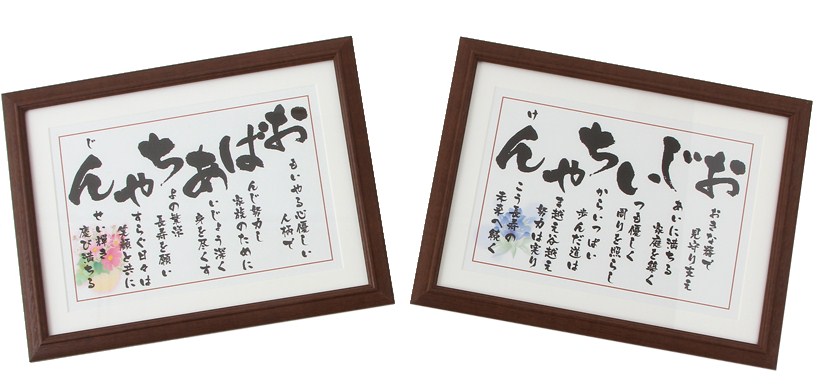 おばあちゃん
じ
もいやる心優しい
人柄で
んじ努力し
家族のために
いじょう深く
身を尽くす
よの
長寿を願い
すらぐ日々は
笑顔と共に
せい輝き
慶び満ちる
おじいちゃん
け
おきな器で
見守り支え
あいに満ちる
家庭を築く
つも優しく
周りを照らし
からいっぱい
歩んだ道は
ま越え谷越え
努力は実り
こう長寿の
未来へ続く